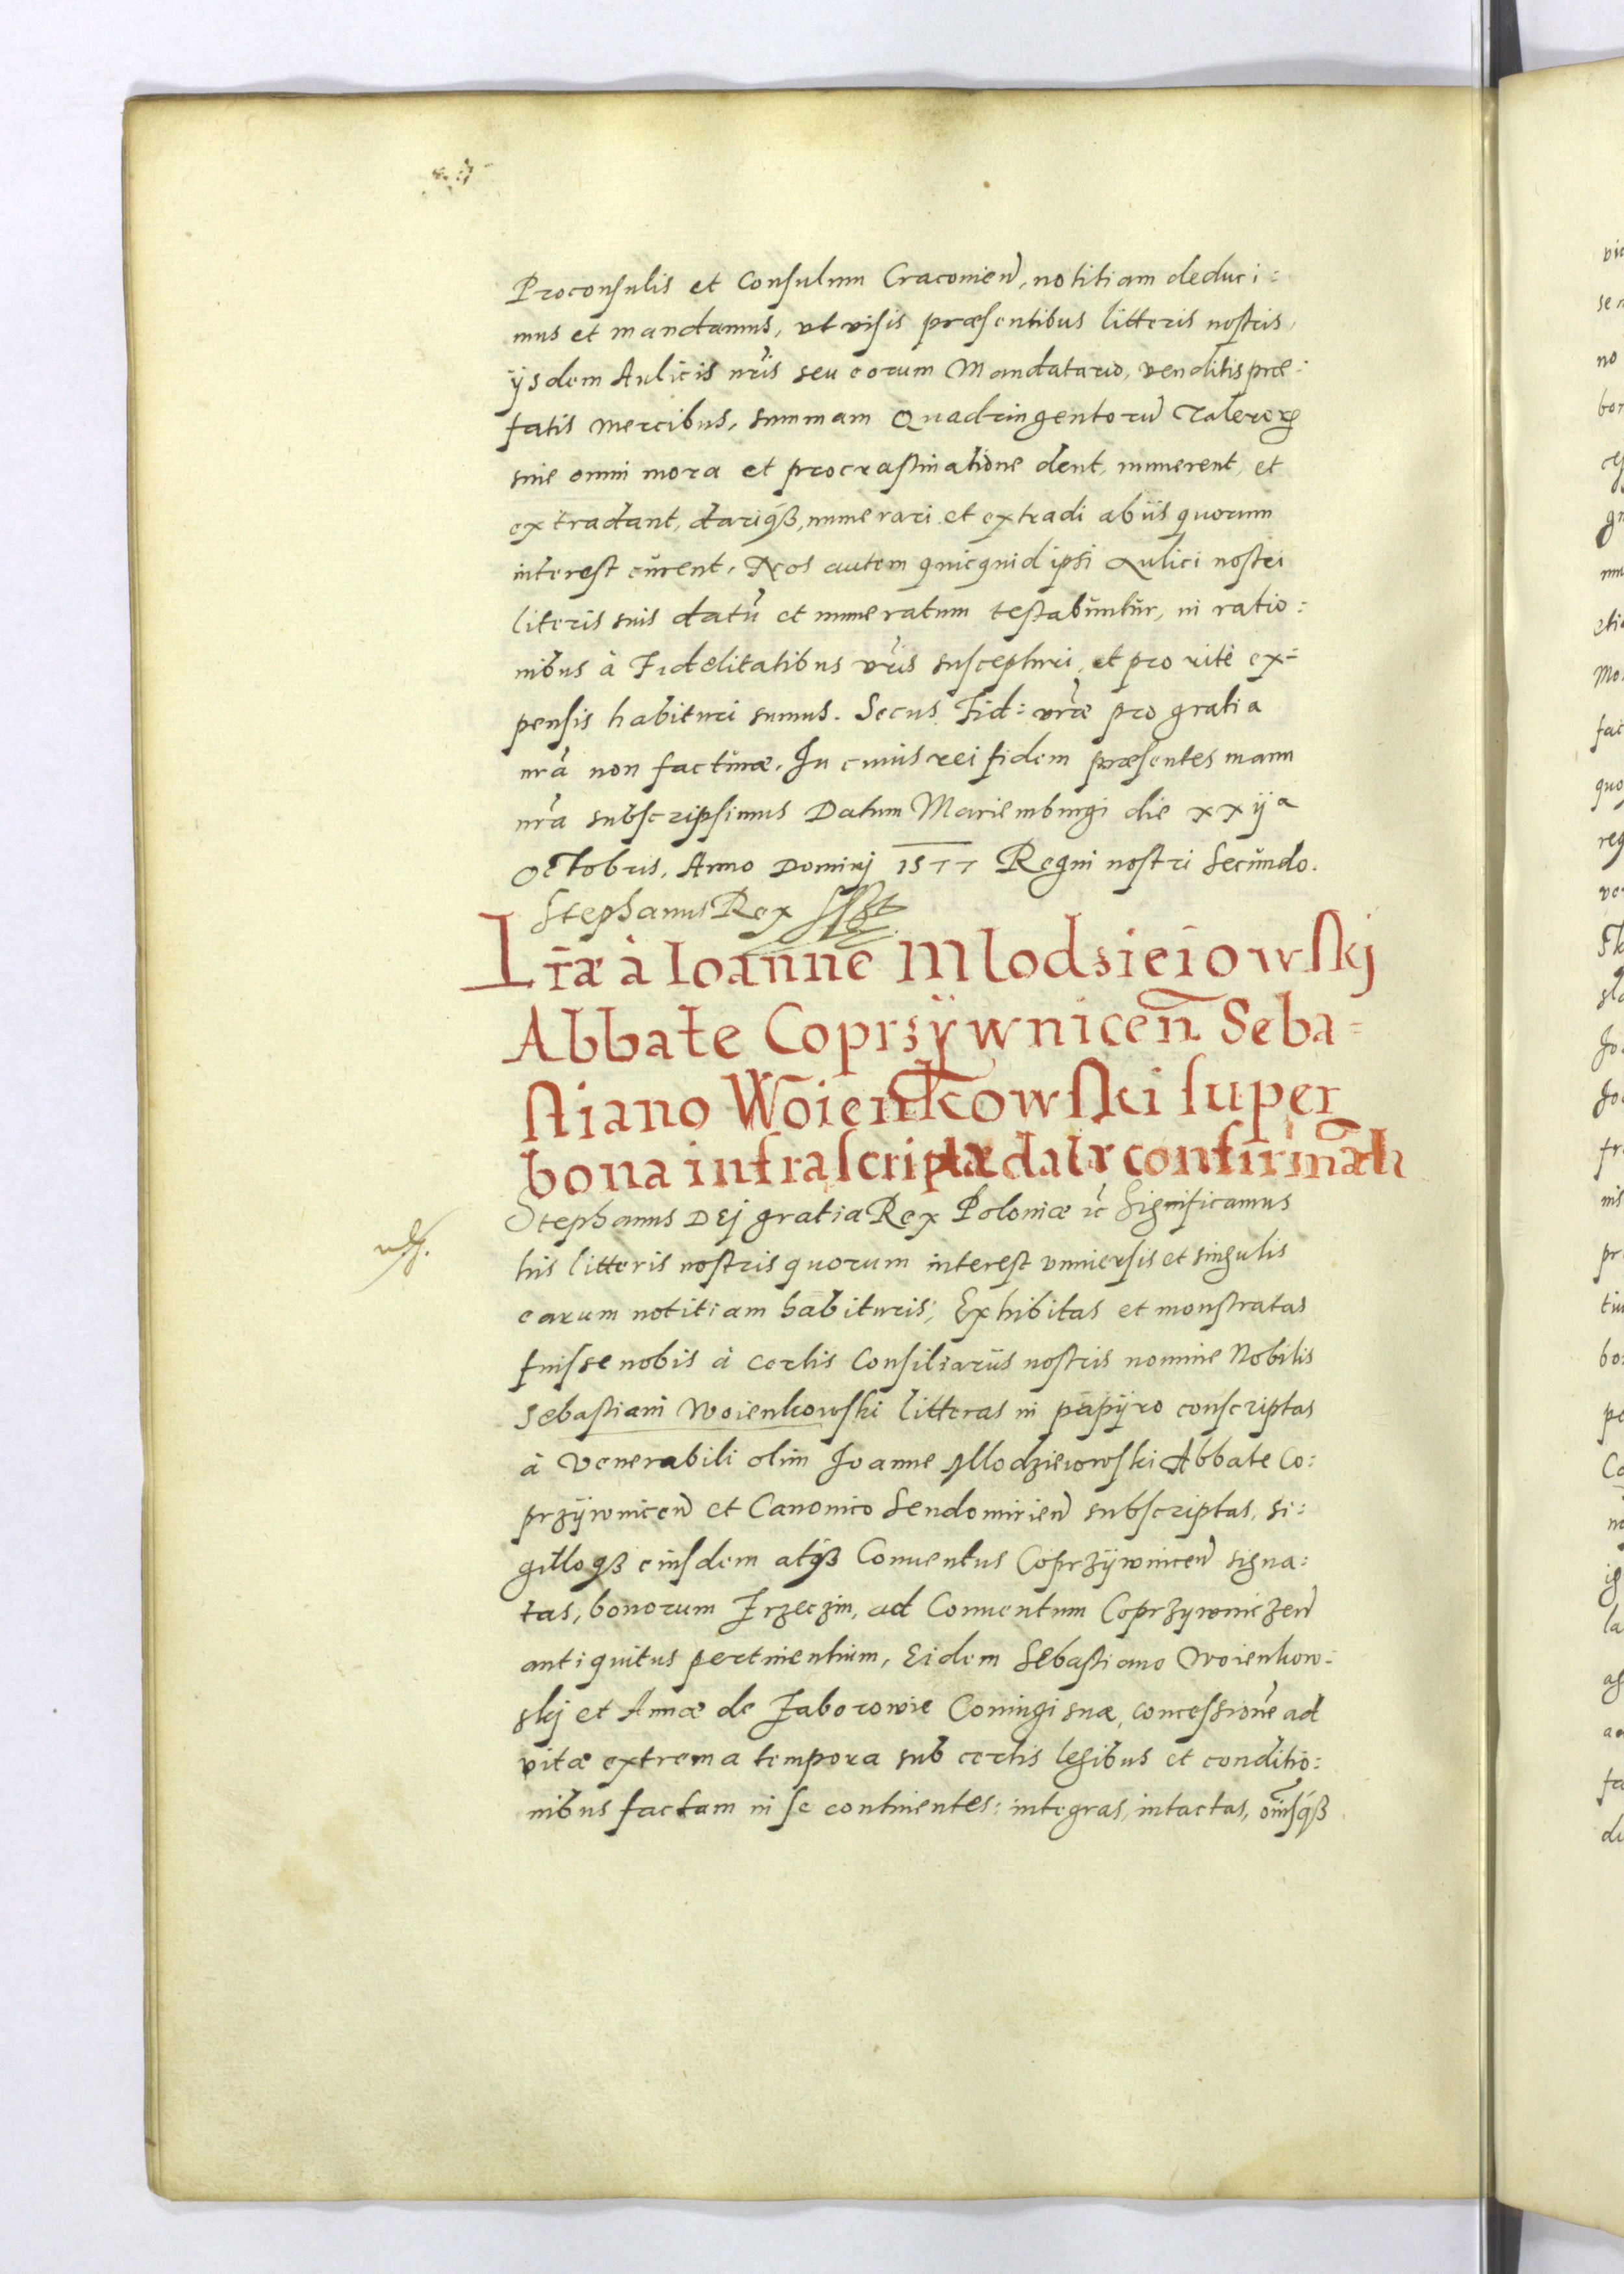 Proconsulis et Consulum Cracovien̄, notitiam deduci:
mus et mandamus, ut visis præsentibus litteris nostris,
ijsdem Aulicis nr̄is seu eorum Mandatario, venditis præ:
fatis mercibus, summam Quadringentorū Taleroꝝ
sine omni mora et procrastinatione dent, numerent, et
extradant, dariqꝫ, numerari et extradi ab iis quorum
interest curent. Nos autem quicquid ipsi Aulici nostri
literis suis datū et numeratum testabuntur, in ratio:
nibus à Fidelitatibus vr̄is suscepturi, et pro ritè ex:
pensis habituri sumus. Secus Fid: vr̄æ pro gratia
nr̄a non facturæ. In cuius rei fidem præsentes manu
nr̄a subscripsimus Datum Mariemburgi die xxija
Octobris, Anno Dominj 1577 Regni nostri Secundo.
Stephanus Rex
Lr̄æ à Ioanne Mlodsieiowskj
Abbate Coprsÿwnicen̄ Seba=
stiano Woienkowski super
bona infrascripta datæ confirmātr
Stephanus Dej gratia Rex Poloniæ ꝛc̄ Significamus
his litteris nostris quorum interest universis et singulis
earum notitiam habituris, Exhibitas et monstratas
fuisse nobis à certis Consiliariis nostris nomine Nobilis
Sebastiani Woienkowski litteras in papijro conscriptas
à Venerabili olim Joanne Mlodzieiowski Abbate Co:
przijwnicen̄ et Canonico Sendomirien̄ subscriptas, si:
gilloqꝫ eiusdem atqꝫ Conventus Coprzijwnicen̄ signa:
tas, bonorum Trzeczin, ad Conventum Coprzywniczen̄
antiquitus pertinentium, Eidem Sebastiano Woienkow:
skj et Annæ de Zaborowie Coniugi suæ, concessionē ad
vitæ extrema tempora sub certis legibus et conditio:
nibus factam in se continentes: integras, intactas, oīnisqꝫ